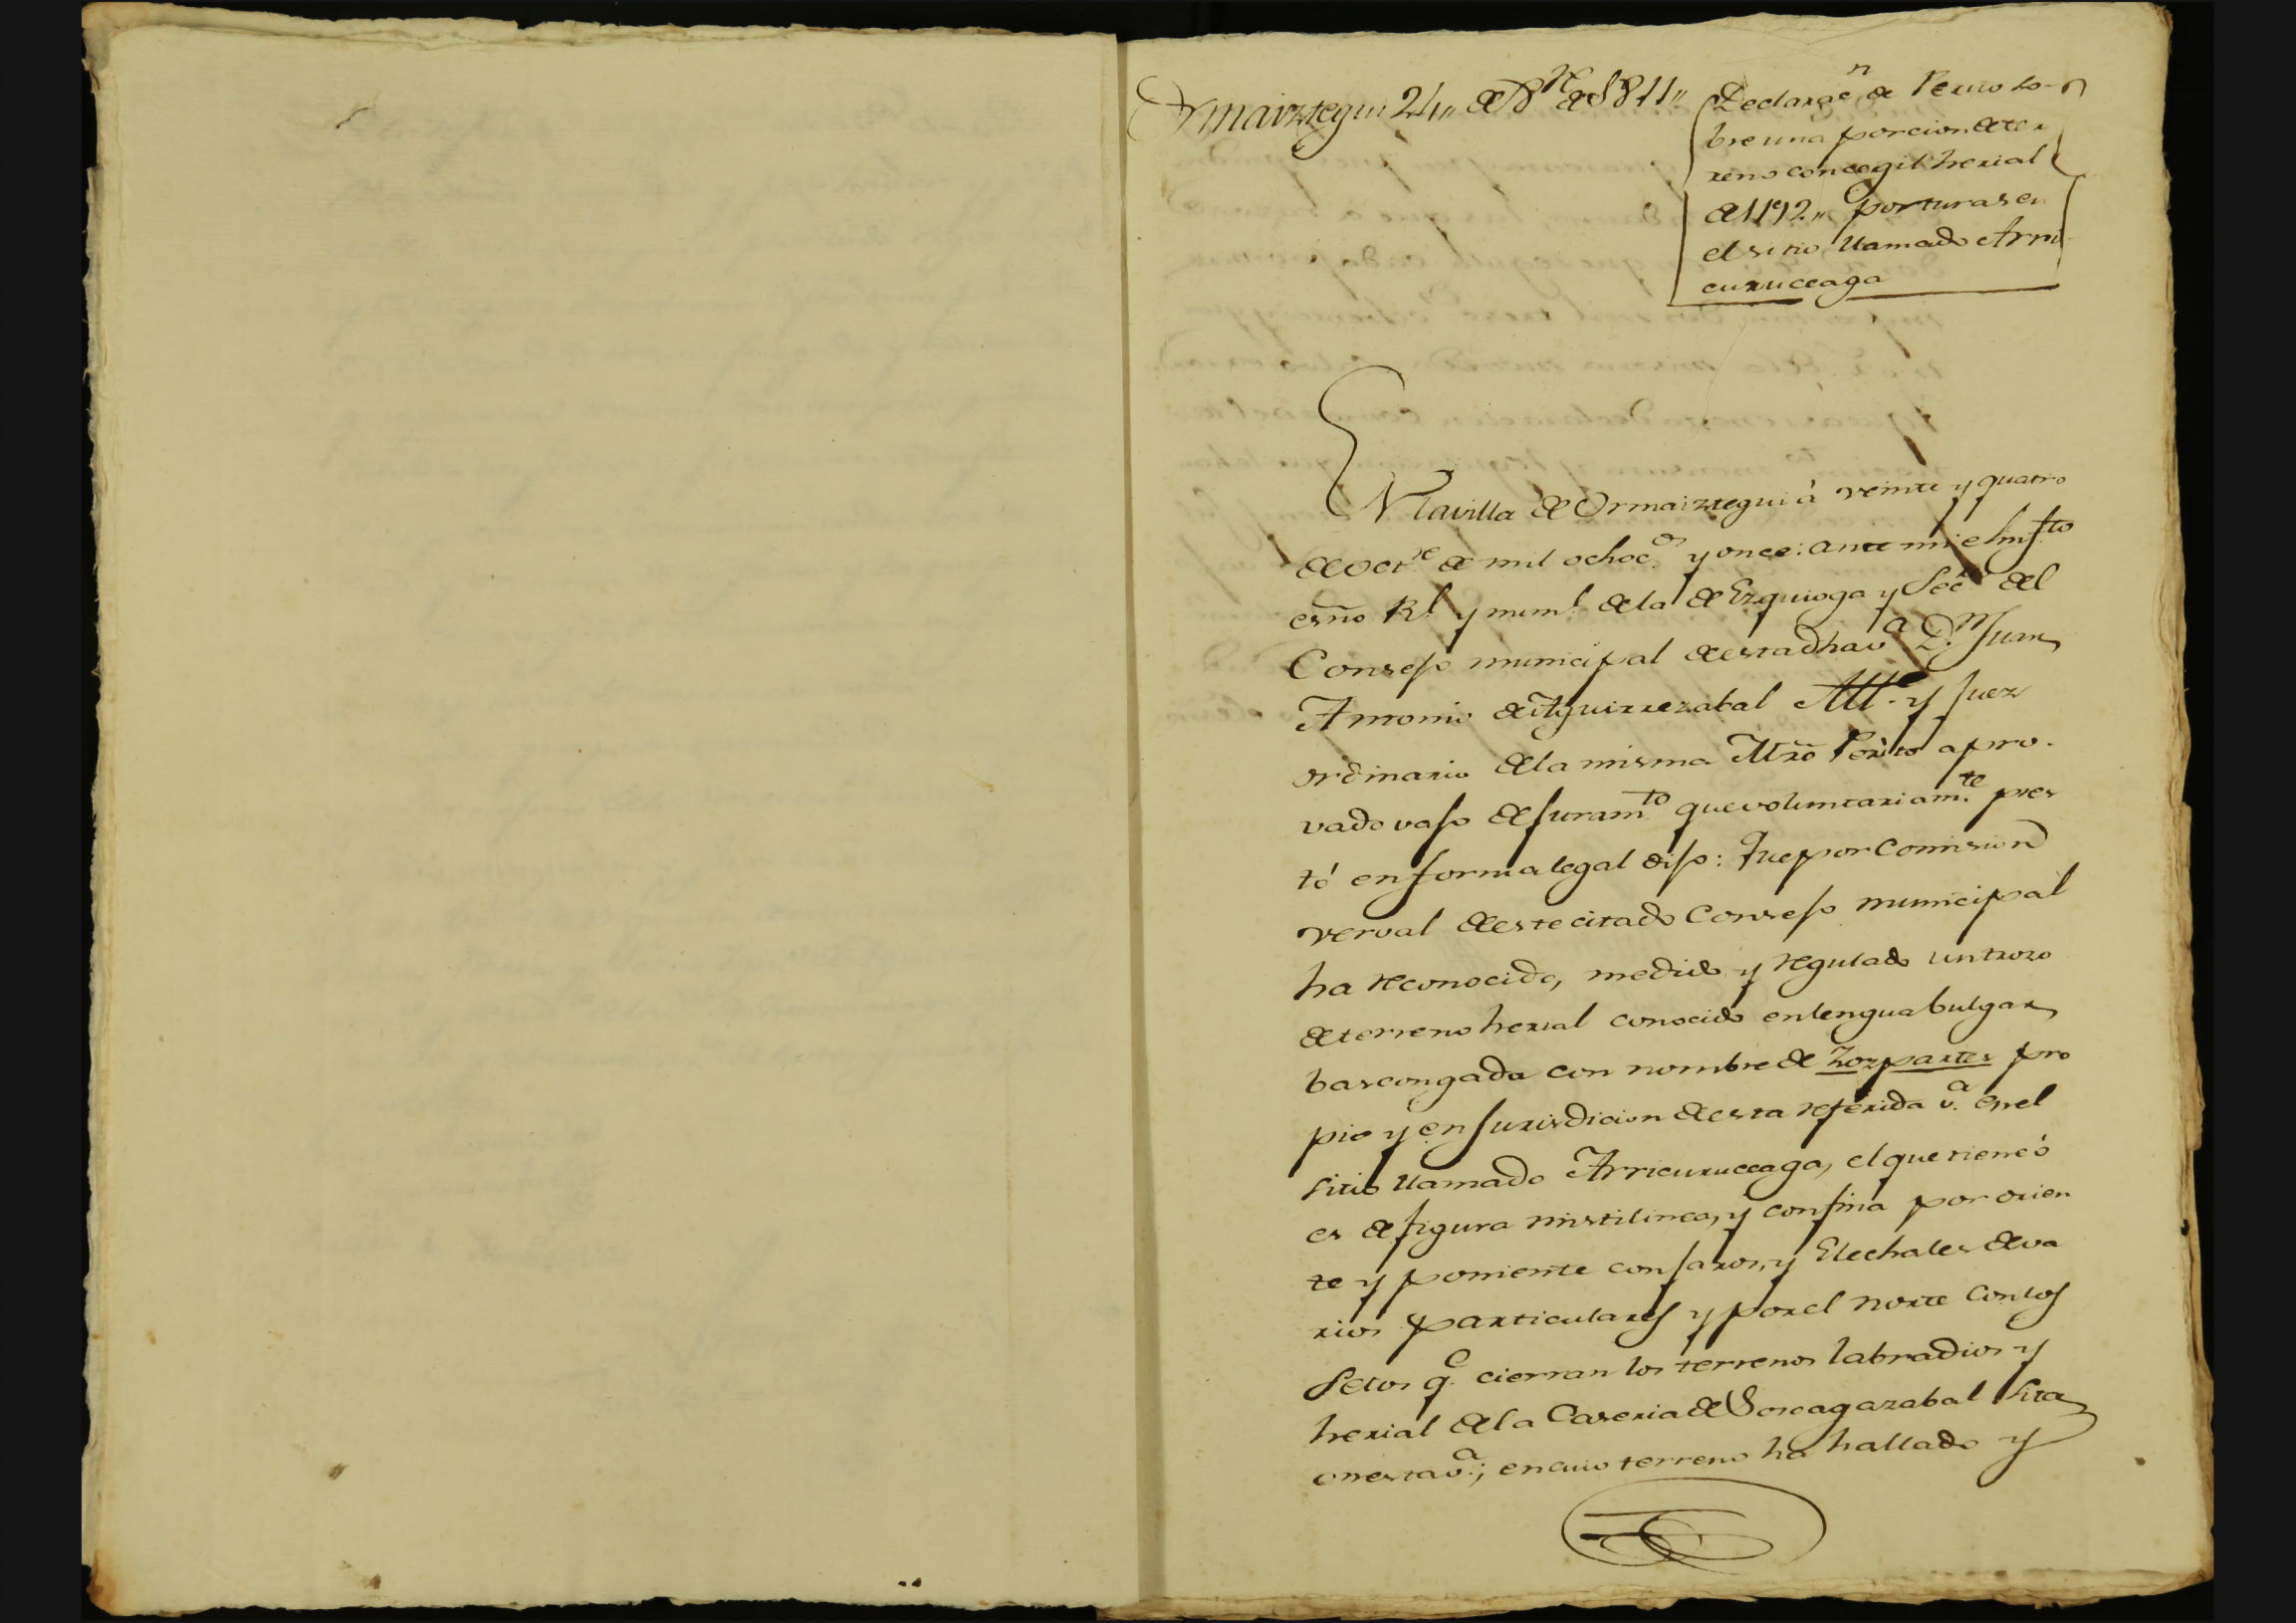 Ormaiztegui 24,, de 8re de 1811,,
Declarac.n de Perito so-
bre una porcion de ter
reno concegil herial
de 1192,, posturas en
el sitio llamado Arri
curuceaga
En la villa de Ormaiztegui à veinte y quatro
de oct.re de mil ochoc.os y once: ante mi el infr.to
esño Rl. y num.l de la de Ezquioga y Sec.rio del
Consejo municipal de esta dha v.a D.n Juan
Antonio de Aguirrezabal Alle. y Juez
ordinario de la misma Mrõ Perito apro-
vado vajo de juram.to que voluntariam.te pres
tó en forma legal dijo: Que por Comision
verval de este citado Consejo municipal
ha reconocido, medido y regulado un trozo
de terreno herial conocido en lengua bulgar
bascongada con nombre de Zozpartes pro
pio y en jurisdicion de esta referida v.a en el
sitio llamado Arricuruceaga, el que tiene ó
es de figura mistilinea, y confina por orien
te y poniente con jaros, y Elechales de va
rios particulares y por el norte con los
Setos q.e cierran los terrenos labradios y
herial de la Caseria de Soreagazabal sita
en esta v.a; en cuio terreno ha hallado y